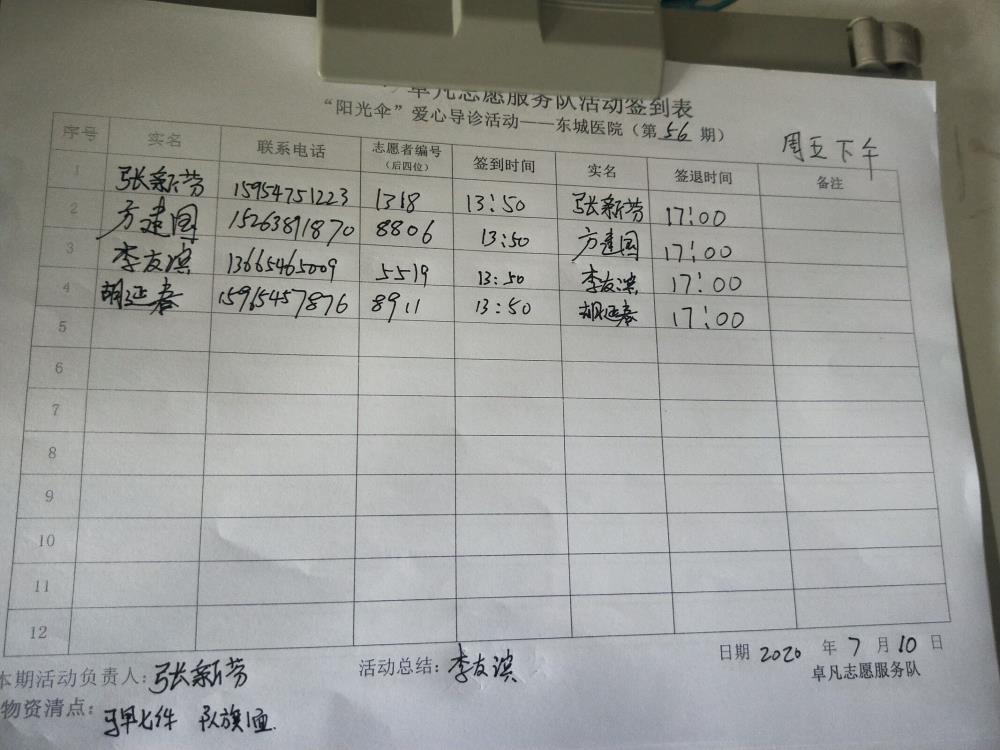 卓凡志愿服务队活动签到表
“阳光伞”爱心导诊活动——东城医院（第 56 期）
周五下午
序号 实名 联系电话 志愿者编号（后四位） 签到时间 实名 签退时间 备注
1 张新芳 15954751223 1318 13:50 张新芳 17:00
2 方建国 15263891870 8806 13:50 方建国 17:00
3 李友滨 13665465009 5519 13:50 李友滨 17:00
4 胡延春 15915457876 8911 13:50 胡延春 17:00
5
6
7
8
9
10
11
12
日期 2020 年 7 月 10 日
本期活动负责人：张新芳 活动总结：李友滨 卓凡志愿服务队
物资清点： 七件 队旗